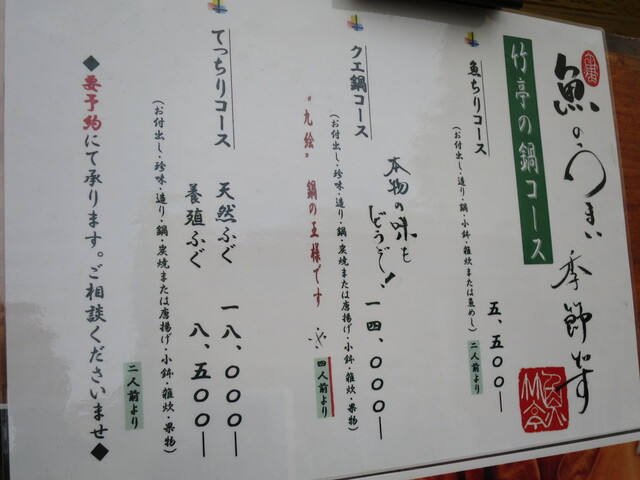 魚のうまい季節です
竹亭の鍋コース
魚ちりコース
(お付出し・造り・鍋・小鉢・雑炊または魚めし)
五、五〇〇―
二人前より
本物の味を
どうぞ、!
クエ鍋コース
(お付出し・珍味・造り・鍋・炭焼または唐揚げ・小鉢・雑炊・果物)
一四、〇〇〇―
"九絵" 鍋の王様です
四人前より
てっちりコース
天然ふぐ 一八、〇〇〇―
養殖ふぐ 八、五〇〇―
(お付出し・珍味・造り・鍋・炭焼または唐揚げ・小鉢・雑炊・果物)
二人前より
◆要予約にて承ります。ご相談くださいませ◆